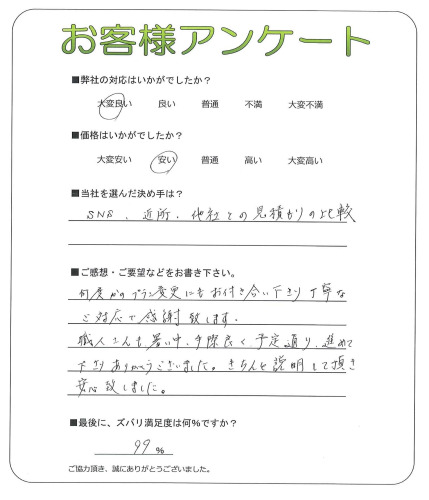 お客様アンケート
■弊社の対応はいかがでしたか？
大変良い 良い 普通 不満 大変不満
■価格はいかがでしたか？
大変安い 安い 普通 高い 大変高い
■当社を選んだ決め手は？
SNS、近所、他社との見積かりの比較
■ご感想・ご要望などをお書き下さい。
何度かのプラン変更にもお付き合い下さり丁寧な
ご対応で感謝致します。
職人さんも暑い中、手際良く予定通り、進めて
下さりありがとうございました。きちんと説明して頂き
安心致しました。
■最後に、ズバリ満足度は何％ですか？
99 %
ご協力頂き、誠にありがとうございました。